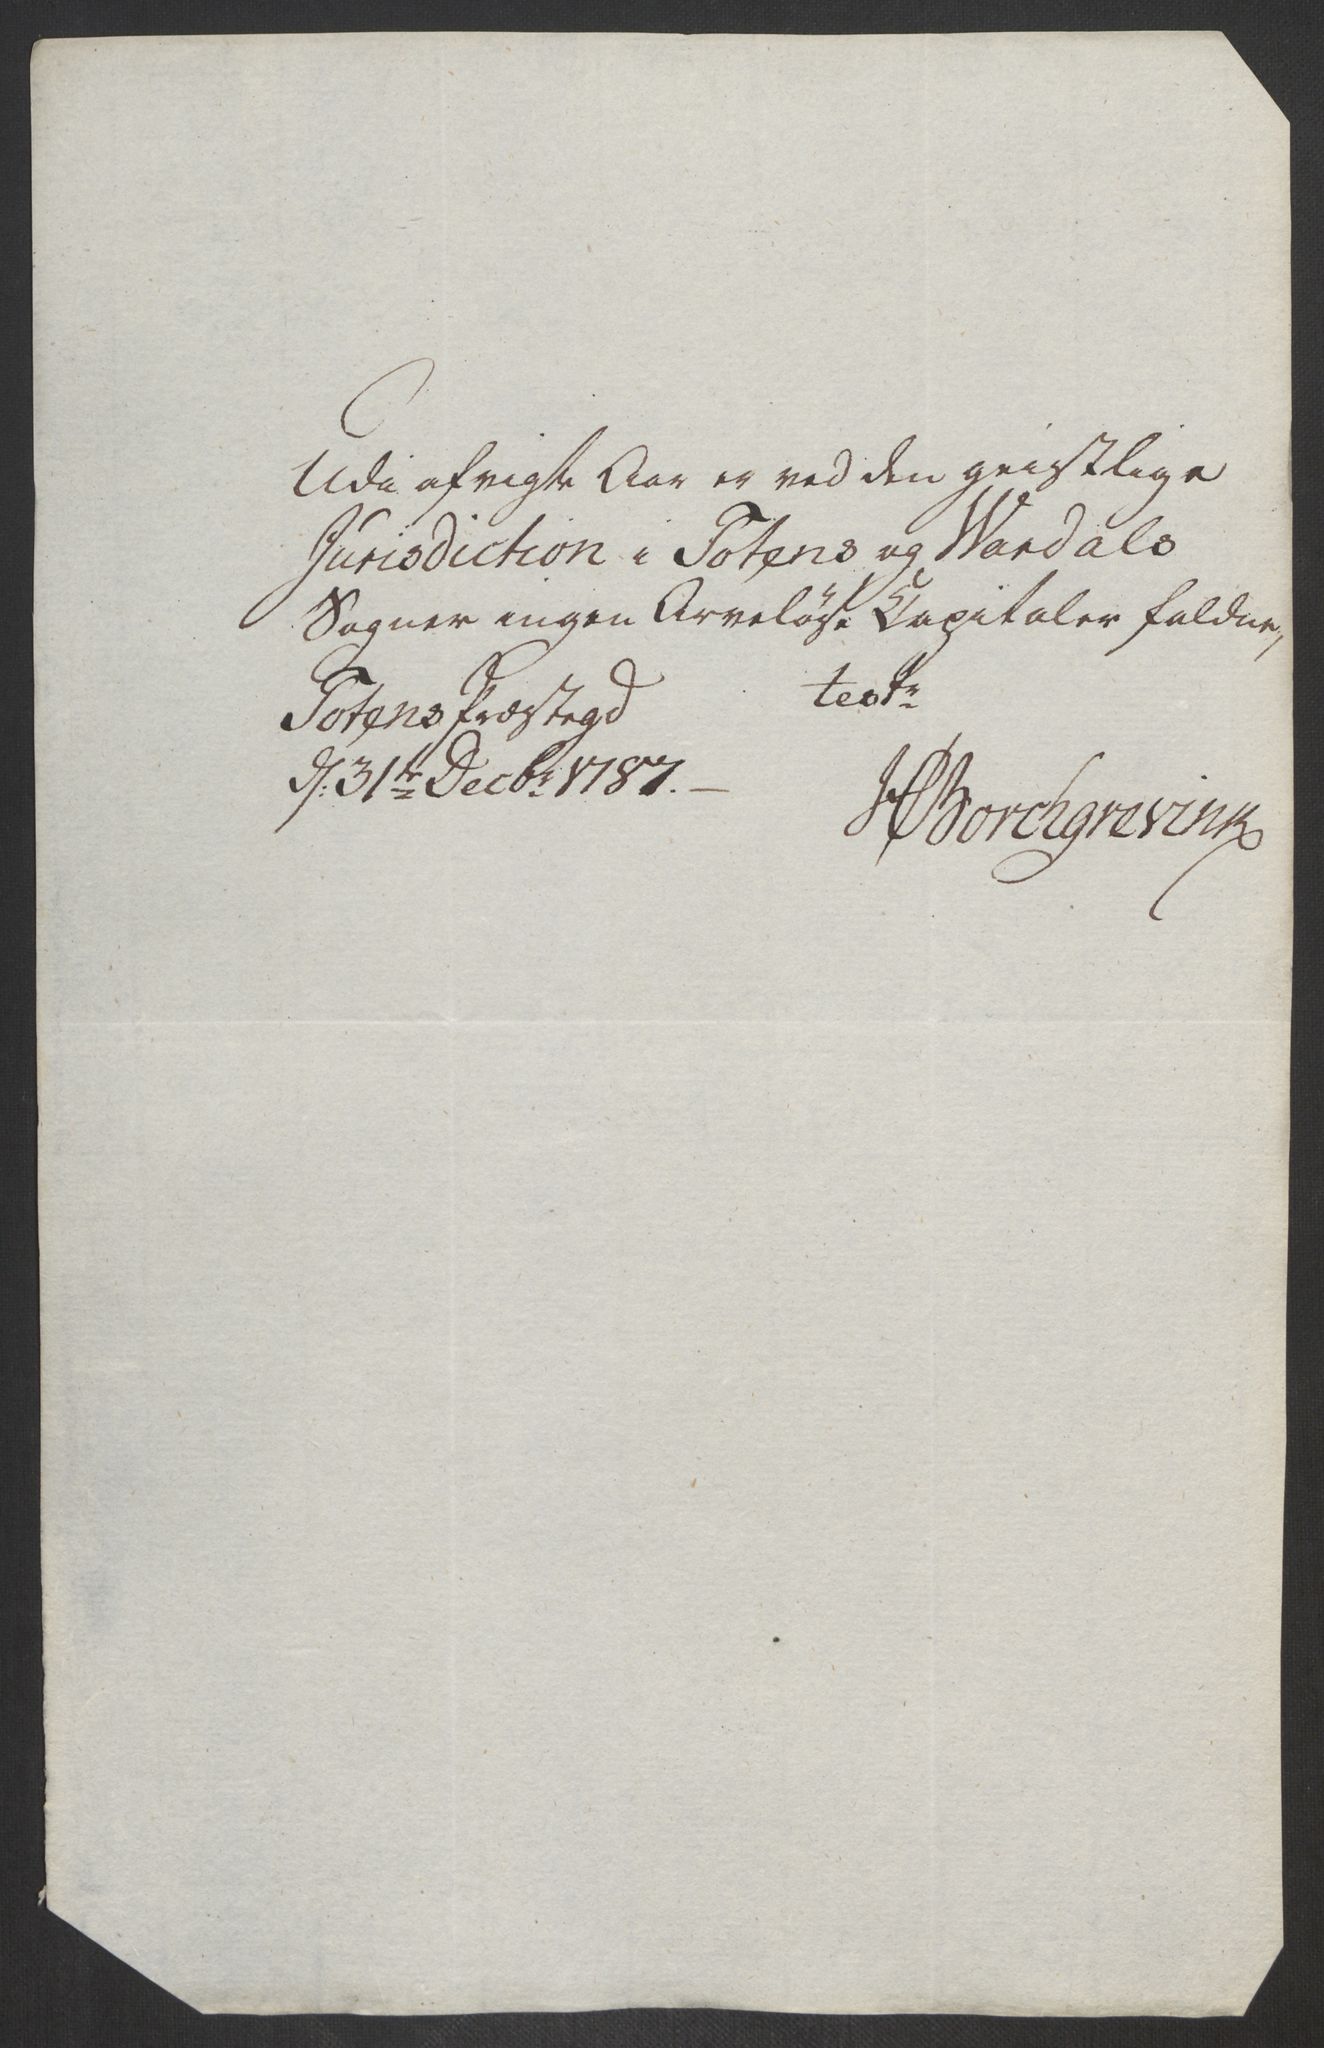 Udi afvigte Aar er ved den geistlige
Jurisdiction i Totens og Wardals
Sogner ingen Arveløse Capitaler faldne,
Totens Præstegd testr
d: 31te Decbr 1787. —
HCBorchgrevink